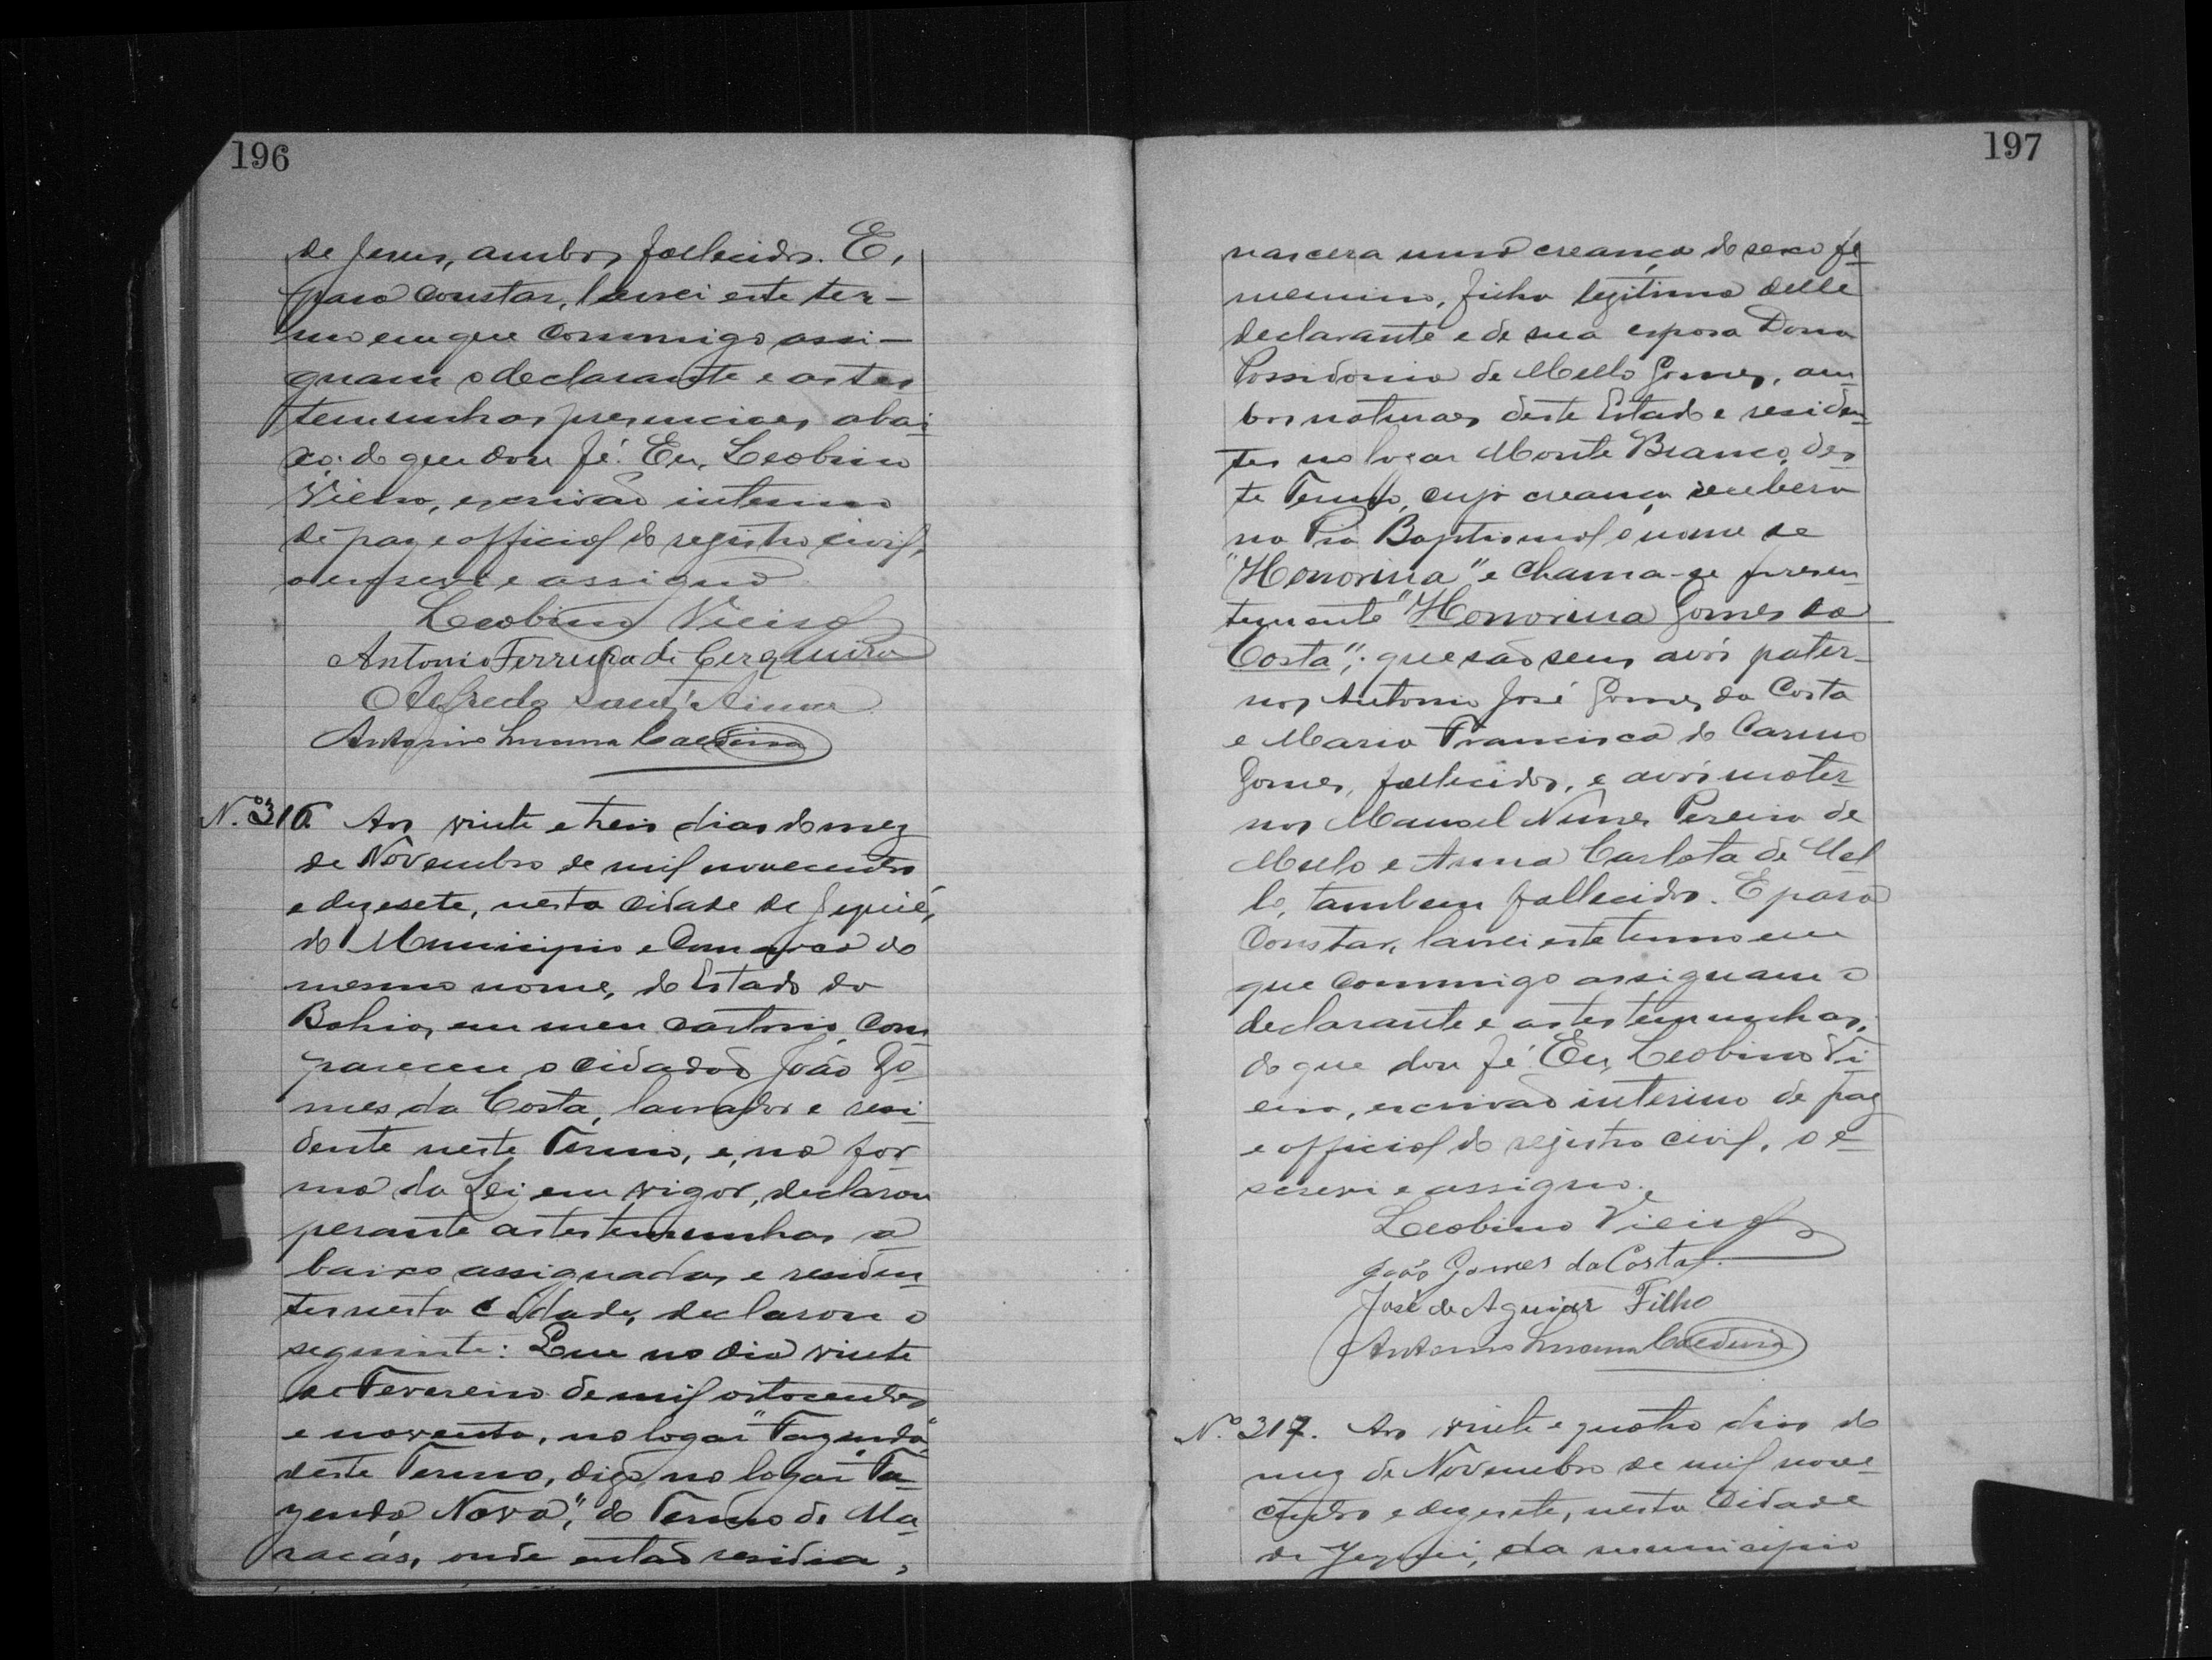 196
de Jesus, ambos fallecidos. E,
para constar, lavrei este ter-
mo em que commigo assi-
gnam o declarante e as tes
temunhas presenciaes abai-
xo: do que dou fé. Eu, Leobino
Vieira, escrivão interino
de paz e official do registro civil,
o escrevi e assigno
Leobino Vieira
Antonio Ferreira de Cerqueira
Alfredo Sant'Anna
Antonio Lucena
Nº 316. Aos vinte e treis dias do mez
de Novembro de mil novecentos
e dezesete, nesta cidade de Jequié,
do Municipio e Comarca do
mesmo nome, do Estado da
Bahia, em meu cartorio, com
pareceu o cidadão João Go-
mes da Costa, lavrador e resi-
dente neste Termo, e, na for-
ma da Lei em vigor, declarou
perante as testemunhas a-
baixo assignadas e residen-
tes nesta cidade, declarou o
seguinte: Que no dia vinte
de Fevereiro de mil oitocentos
e noventa, no logar "Fazenda"
deste Termo, digo, no logar "Fa-
zenda Nova", do Termo de Ma-
racás, onde então residia,
197
nascera uma creança do sexo fe-
menino, filha legitima delle
declarante e de sua esposa Dona
Possidonia de Mello Gomes, am-
bos naturaes deste Estado e residen-
tes no logar Monte Branco, des-
te Termo, cuja creança recebera
na Pia Baptismal o nome de
"Honorina" e chama-se presen-
temente "Honorina Gomes da
Costa"; que são seus avós pater-
nos Antonio José Gomes da Costa
e Maria Francisca do Carmo
Gomes, fallecidos, e avós mater-
nos Manoel Nunes Pereira de
Mello e Anna Carlota de Mel
lo, tambem fallecidos. E para
constar, lavrei este termo em
que commigo assignam o
declarante e as testemunhas,
do que dou fé. Eu, Leobino Vi-
eira, escrivão interino de paz
e official do registro civil, o e-
screvi e assigno.
Leobino Vieira
João Gomes da Costa.
José de Aguiar Filho
Antonio Lucena
Nº 317. Aos vinte e quatro dias do
mez de Novembro de mil nove-
centos e dezesete, nesta Cidade
de Jequié, da municipio